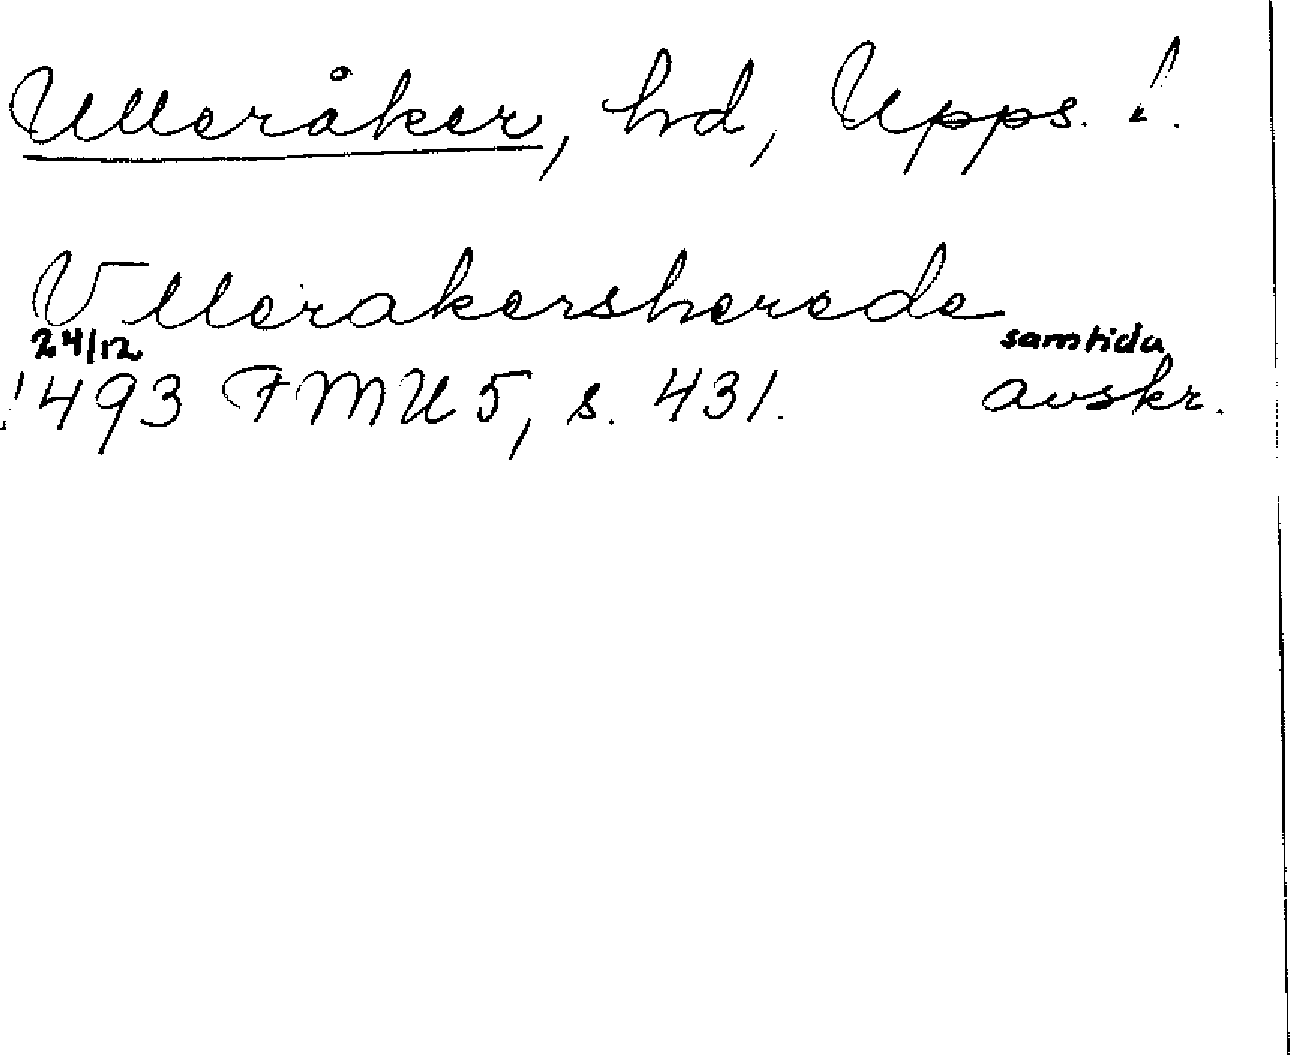 Ulleråker, hd, Upps. l.
Vllerakersherede
24/12 samtida
1493 FMU 5, s. 431. avskr.